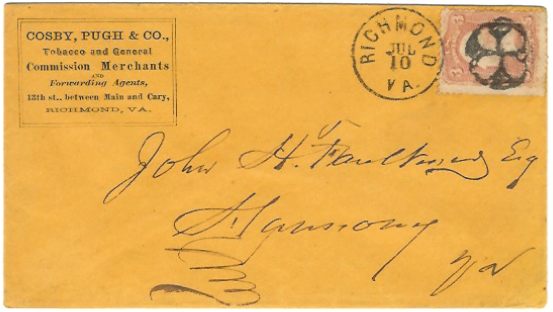 COSBY, PUGH & CO.,
Tobacco and General
Commission Merchants
AND
Forwarding Agents,
13th st., between Main and Cary,
RICHMOND, VA.
RICHMOND
JUL
10
VA.
3
John H. Faulkner Esq
Harmony
Va